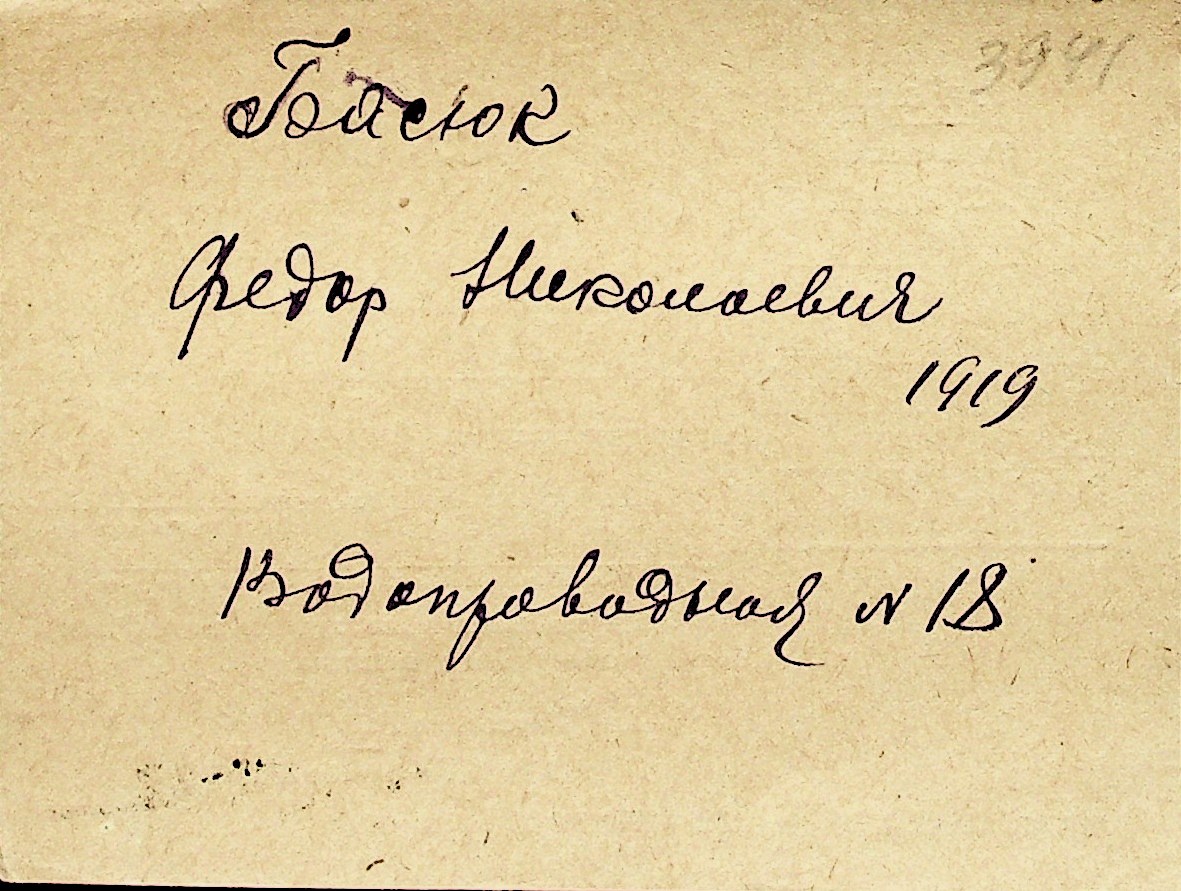 3941
Басюк
Федор Николаевич
1919
Водопроводная N 18